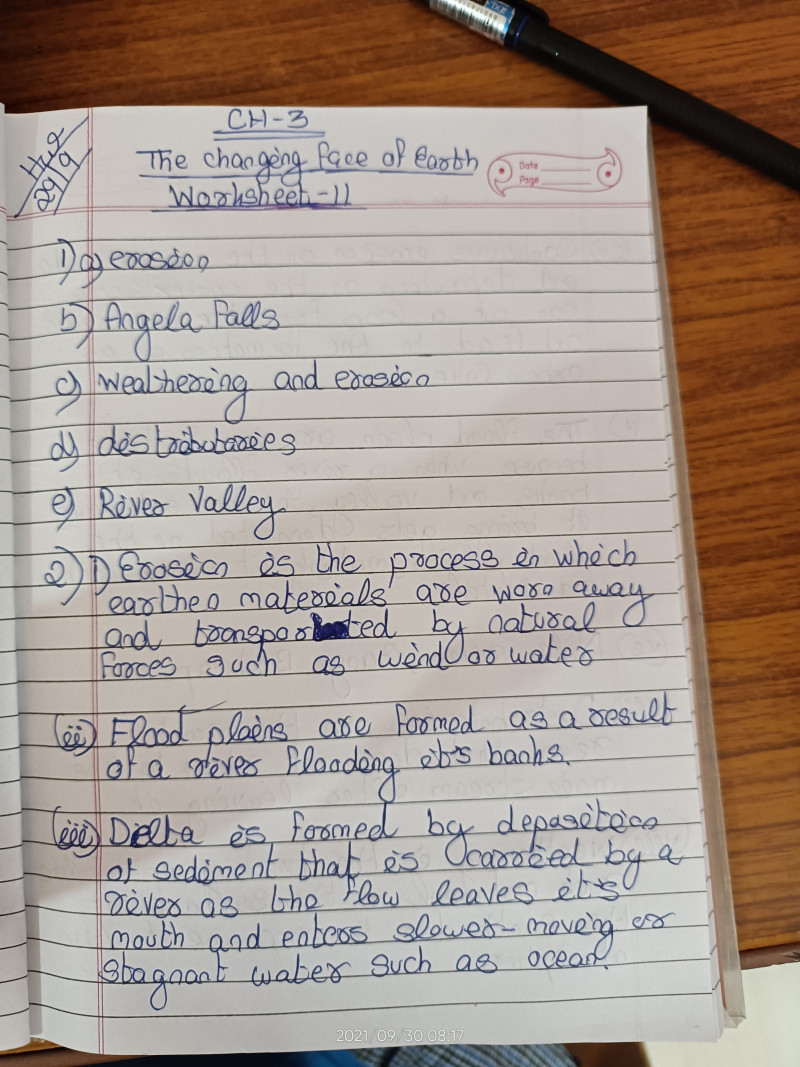 CH-3
The changing face of Earth
Worksheet-11
H.W
29/9
Date
Page
1) a) erosion
b) Angela Falls
c) wealthering and erosion
d) distributaries
e) River Valley
2) i) Erosion is the process in which
earthen materials are worn away
and transported by natural
forces such as wind or water
(ii) Flood plains are formed as a result
of a river flooding it's banks.
(iii) Delta is formed by deposition
of sediment that is carried by a
river as the flow leaves it's
mouth and enters slower-moving or
stagnant water such as ocean.
2021/09/30 08:17